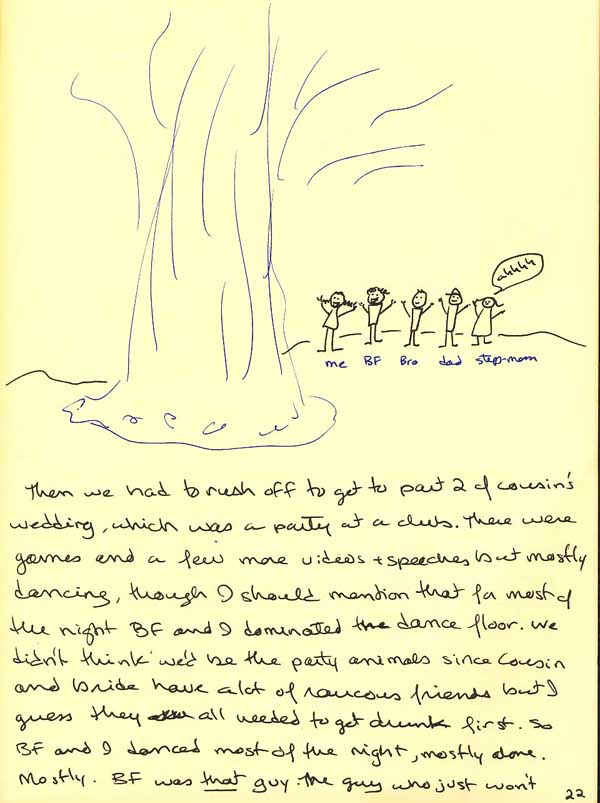 ahhhh
me BF Bro dad step-mom
Then we had to rush off to get to part 2 of cousin's
wedding, which was a party at a club. There were
games and a few more videos + speeches but mostly
dancing, though I should mention that for most of
the night BF and I dominated the dance floor. We
didn't think we'd be the party animals since Cousin
and bride have alot of raucous friends but I
guess they all needed to get drunk first. So
BF and I danced most of the night, mostly alone.
Mostly. BF was that guy - the guy who just won't
22